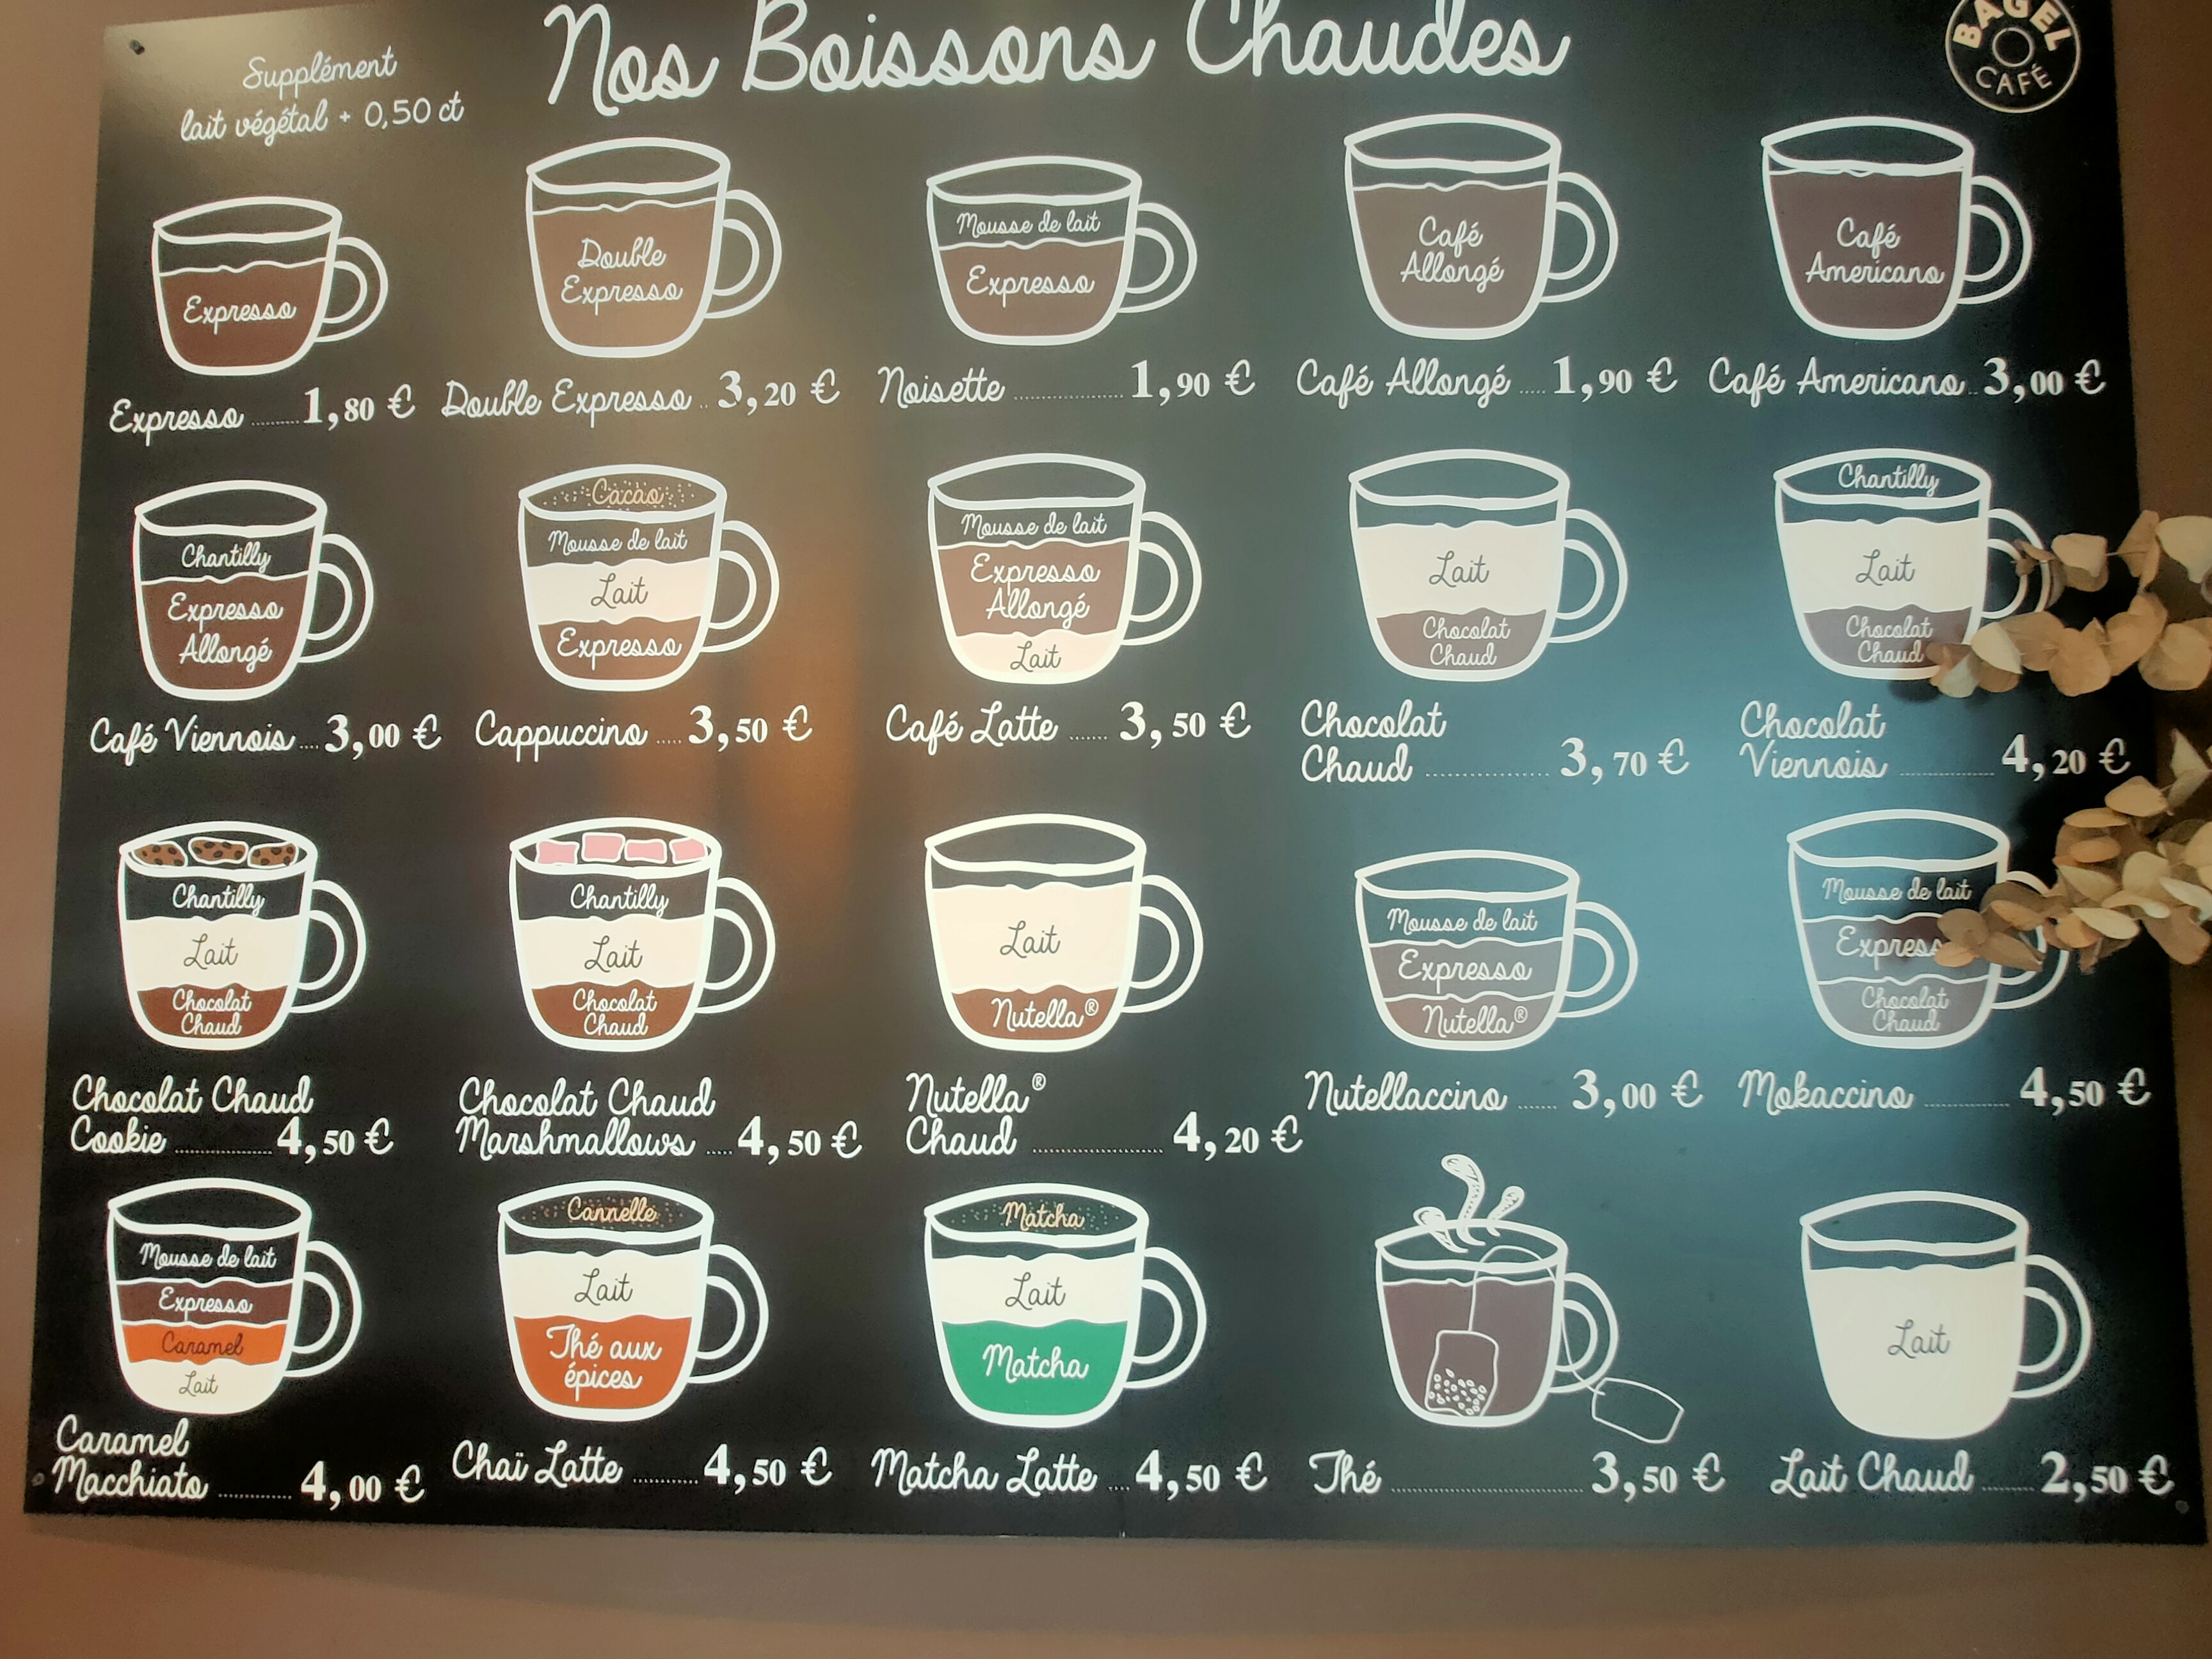 Nos Boissons Chaudes
BAGEL
CAFÉ
Supplément
lait végétal + 0,50 ct
Expresso
Expresso ......... 1,80 €
Double
Expresso
Double Expresso .. 3,20 €
Mousse de lait
Expresso
Noisette ......... 1,90 €
Café
Allongé
Café Allongé ..... 1,90 €
Café
Americano
Café Americano .. 3,00 €
Chantilly
Expresso
Allongé
Café Viennois .... 3,00 €
Cacao
Mousse de lait
Lait
Expresso
Cappuccino ..... 3,50 €
Mousse de lait
Expresso
Allongé
Lait
Café Latte ....... 3,50 €
Lait
Chocolat
Chaud
Chocolat
Chaud ......... 3,70 €
Chantilly
Lait
Chocolat
Chaud
Chocolat
Viennois ......... 4,20 €
Chantilly
Lait
Chocolat
Chaud
Chocolat Chaud
Cookie ......... 4,50 €
Chantilly
Lait
Chocolat
Chaud
Chocolat Chaud
Marshmallows ..... 4,50 €
Lait
Nutella®
Nutella®
Chaud ......... 4,20 €
Mousse de lait
Expresso
Nutella®
Nutellaccino ...... 3,00 €
Mousse de lait
Express
Chocolat
Chaud
Mokaccino ......... 4,50 €
Mousse de lait
Expresso
Caramel
Lait
Caramel
Macchiato ......... 4,00 €
Cannelle
Lait
Thé aux
épices
Chaï Latte ......... 4,50 €
Matcha
Lait
Matcha
Matcha Latte .... 4,50 €
Thé ......... 3,50 €
Lait
Lait Chaud ........ 2,50 €